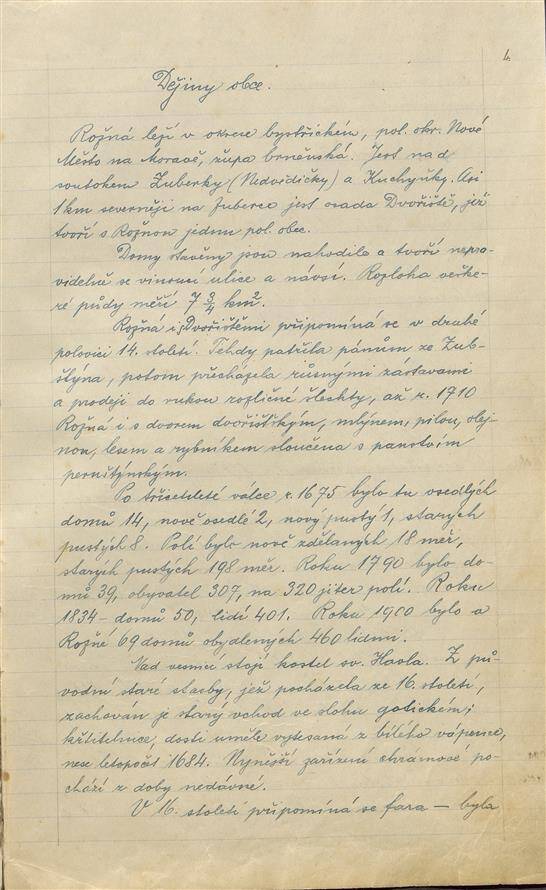 1.
Dějiny obce.
Rožná leží v okrese bystřickém, pol. okr. Nové
Město na Moravě, župa brněnská. Jest nad
soutokem Zuberky (Nedvědičky) a Kuchyňky. Asi
1 km severněji na Zuberce jest osada Dvořiště, jež
tvoří s Rožnou jednu pol. obec.
Domy stavěny jsou nahodile a tvoří nepra-
videlně se vinoucí ulice a návsí. Rozloha veške-
ré půdy měří 7 3/4 km².
Rožná i s Dvořištěmi připomíná se v druhé
polovici 14. století. Tehdy patřila pánům ze Zub-
štýna, potom přecházela různými zástavami
a prodeji do rukou rozličné šlechty, až r. 1710
Rožná i s dvorem dvořišťským, mlýnem, pilou, olej-
nou, lesem a rybníkem sloučena s panstvím
pernštýnským.
Po třicetileté válce r. 1675 bylo tu osedlých
domů 14, nově osedlé 2, nový pustý 1, starých
pustých 8. Polí bylo nově zdělaných 18 měr,
starých pustých 198 měr. Roku 1790 bylo do-
mů 39, obyvatel 307, na 320 jiter polí. Roku
1834 - domů 50, lidí 401. Roku 1900 bylo v
Rožné 69 domů obydlených 460 lidmi.
Nad vesnicí stojí kostel sv. Havla. Z pů-
vodní staré stavby, jež pocházela ze 16. století,
zachován je starý vchod ve slohu gotickém;
křtitelnice, dosti uměle vytesaná z bílého vápence,
nese letopočet 1684. Nynější zařízení chrámové po-
chází z doby nedávné.
V 16. století připomíná se fara — byla